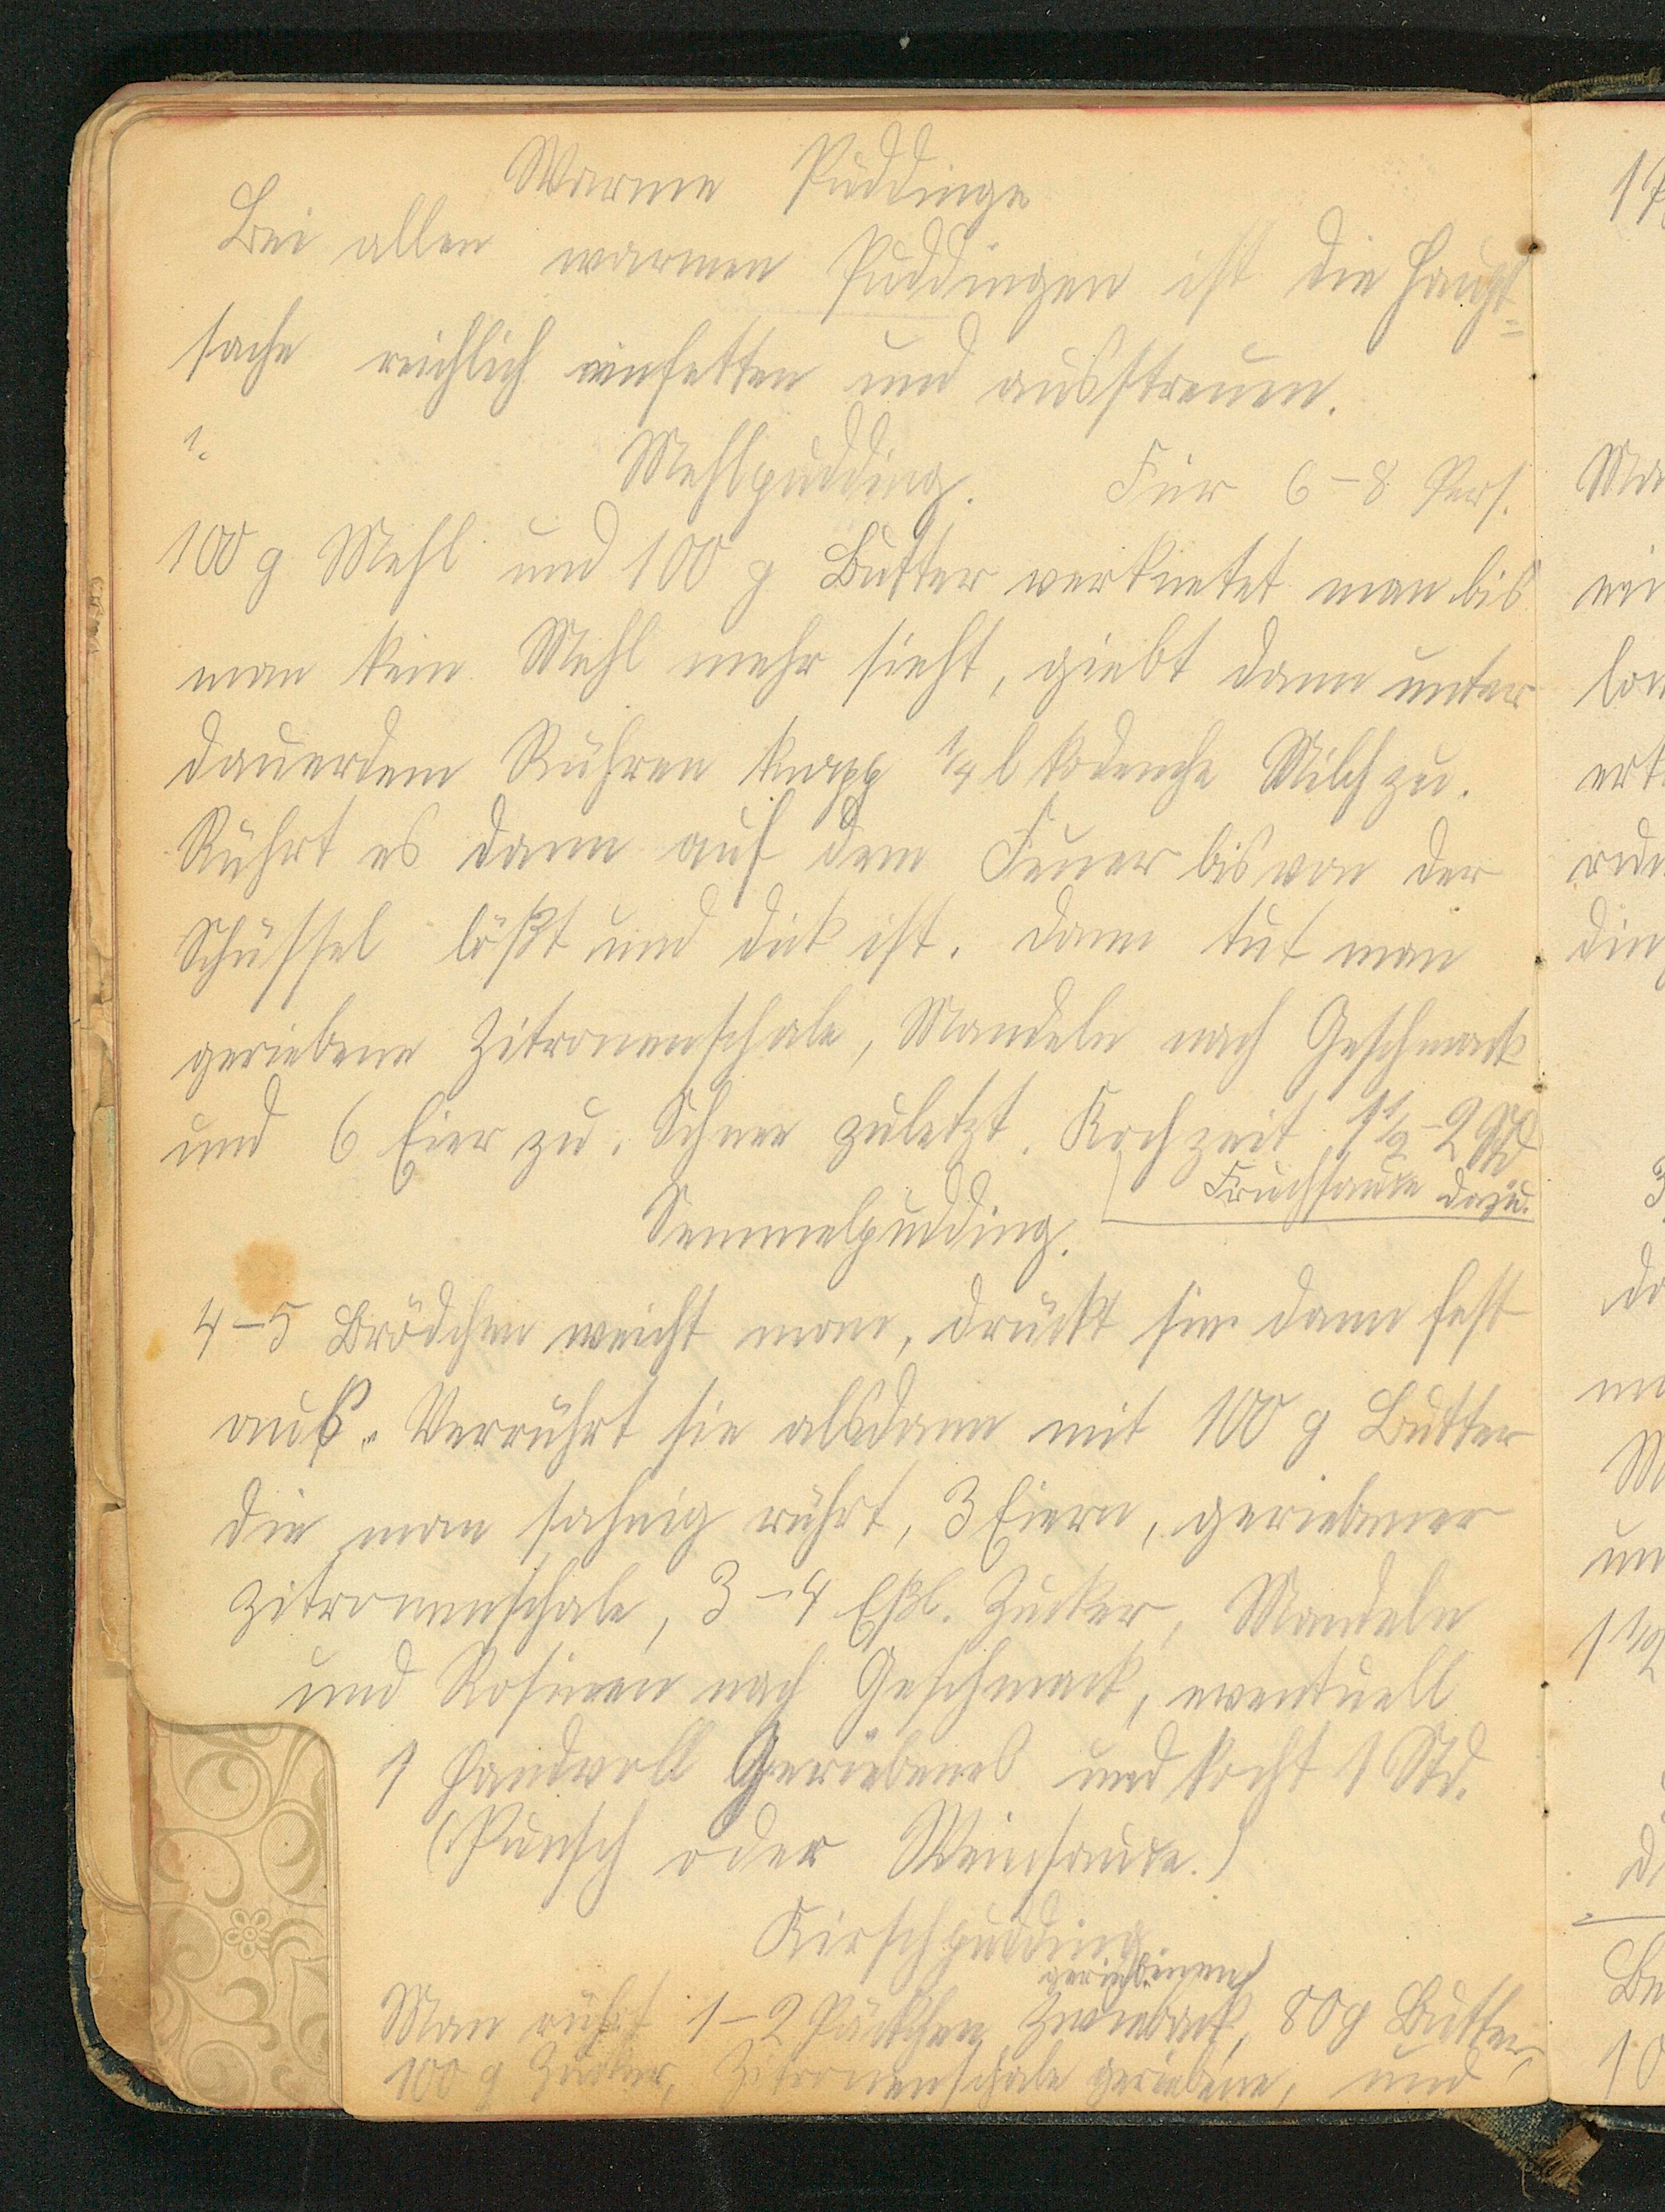 Warme Puddinge
Bei allen warmen Puddingen ist die Haupt=
sache reichlich einfetten und ausstreuen.
1.
Mehlpudding. Für 6-8 Pers.
100 g Mehl und 100 g Butter verknetet man bis
man kein Mehl mehr sieht, giebt dann unter
dauerdem Rühren knapp 1/4 l kodenche Milch zu.
Rührt es dann auf dem Feuer bis von der
Schüssel lößt und dick ist. Dann tut man
geriebene Zitronenschale, Mandeln nach Geschmack
und 6 Eier zu. Schnee zuletzt. Kochzeit 1 1/2-2 Std
Fruchsauce dazu.
Semmelpudding.
4-5 Brödchen weicht man, drückt sie dann fest
aus. Verrührt sie alsdann mit 100 g Butter
die man sahnig rührt, 3 Eiern, geriebener
Zitronenschale, 3-4 Eßl. Zucker, Mandeln
und Rosinen nach Geschmack, eventuell
1 Handvoll Geriebenes und kocht 1 Std.
(Punsch oder Weinsauce.)
Kirschpudding
geriebenen
Man rührt 1-2 Päckchen Zwieback, 80 g Butter,
100 g Zucker, Zitronenschale geriebene, und